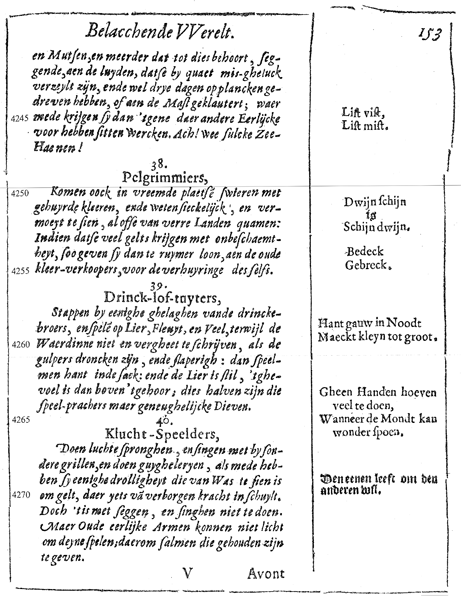 Belacchende VVerelt.
153
en Mutsen, en meerder dat tot dies behoort, seg-
gende, aen de luyden, datse by quaet mis-gheluck
verzeylt zijn, ende wel drye dagen op plancken ge-
dreven hebben, of aen de Mast geklautert; waer
4245 mede krijgen sy dan 'tgene daer andere Eerlijcke
voor hebben sitten Wercken. Ach! Wee sulcke Zee-
Haenen!
List vist,
List mist.
38.
Pelgrimmiers,
4250 Komen oock in vreemde plaetse swieren met
gehuyrde kleeren, ende weten sieckelijck, en ver-
moeyt te sien, al offe van verre Landen quamen:
Indien datse veel gelts krijgen met onbeschaemt-
heyt, soo geven sy dan te ruymer loon, aen de oude
4255 kleer-verkoopers, voor de verhuyringe des selfs.
Dwijn schijn
is
Schijn dwijn.
Bedeck
Gebreck.
39.
Drinck-lof-tuyters,
Stappen by eenighe ghelaghen vande drincke-
broers, en spelē op Lier, Fleuyt, en Veel, terwijl de
4260 Waerdinne niet en vergheet te schrijven, als de
gulpers droncken zijn, ende slaperigh: dan speel-
men hant inde sack: ende de Lier is stil, 'tghe-
voel is dan boven 'tgehoor; dies halven zijn die
speel-prachers maer geneughelijcke Dieven.
4265
Hant gauw in Noodt
Maeckt kleyn tot groot.
Gheen Handen hoeven
veel te doen,
Wanneer de Mondt kan
wonder spoen.
40.
Klucht-Speelders,
Doen luchte spronghen, en singen met byson-
dere grillen, en doen guygheleryen, als mede heb-
ben sy eenighe drolligheyt die van Was te sien is
4270 om gelt, daer yets vā verborgen kracht in schuylt.
Doch 'tis met seggen, en singhen niet te doen.
Maer Oude eerlijke Armen konnen niet licht
om deyne spelen; daerom salmen die gehouden zijn
te geven.
Den eenen leeft om den
anderen wil.
V
Avont